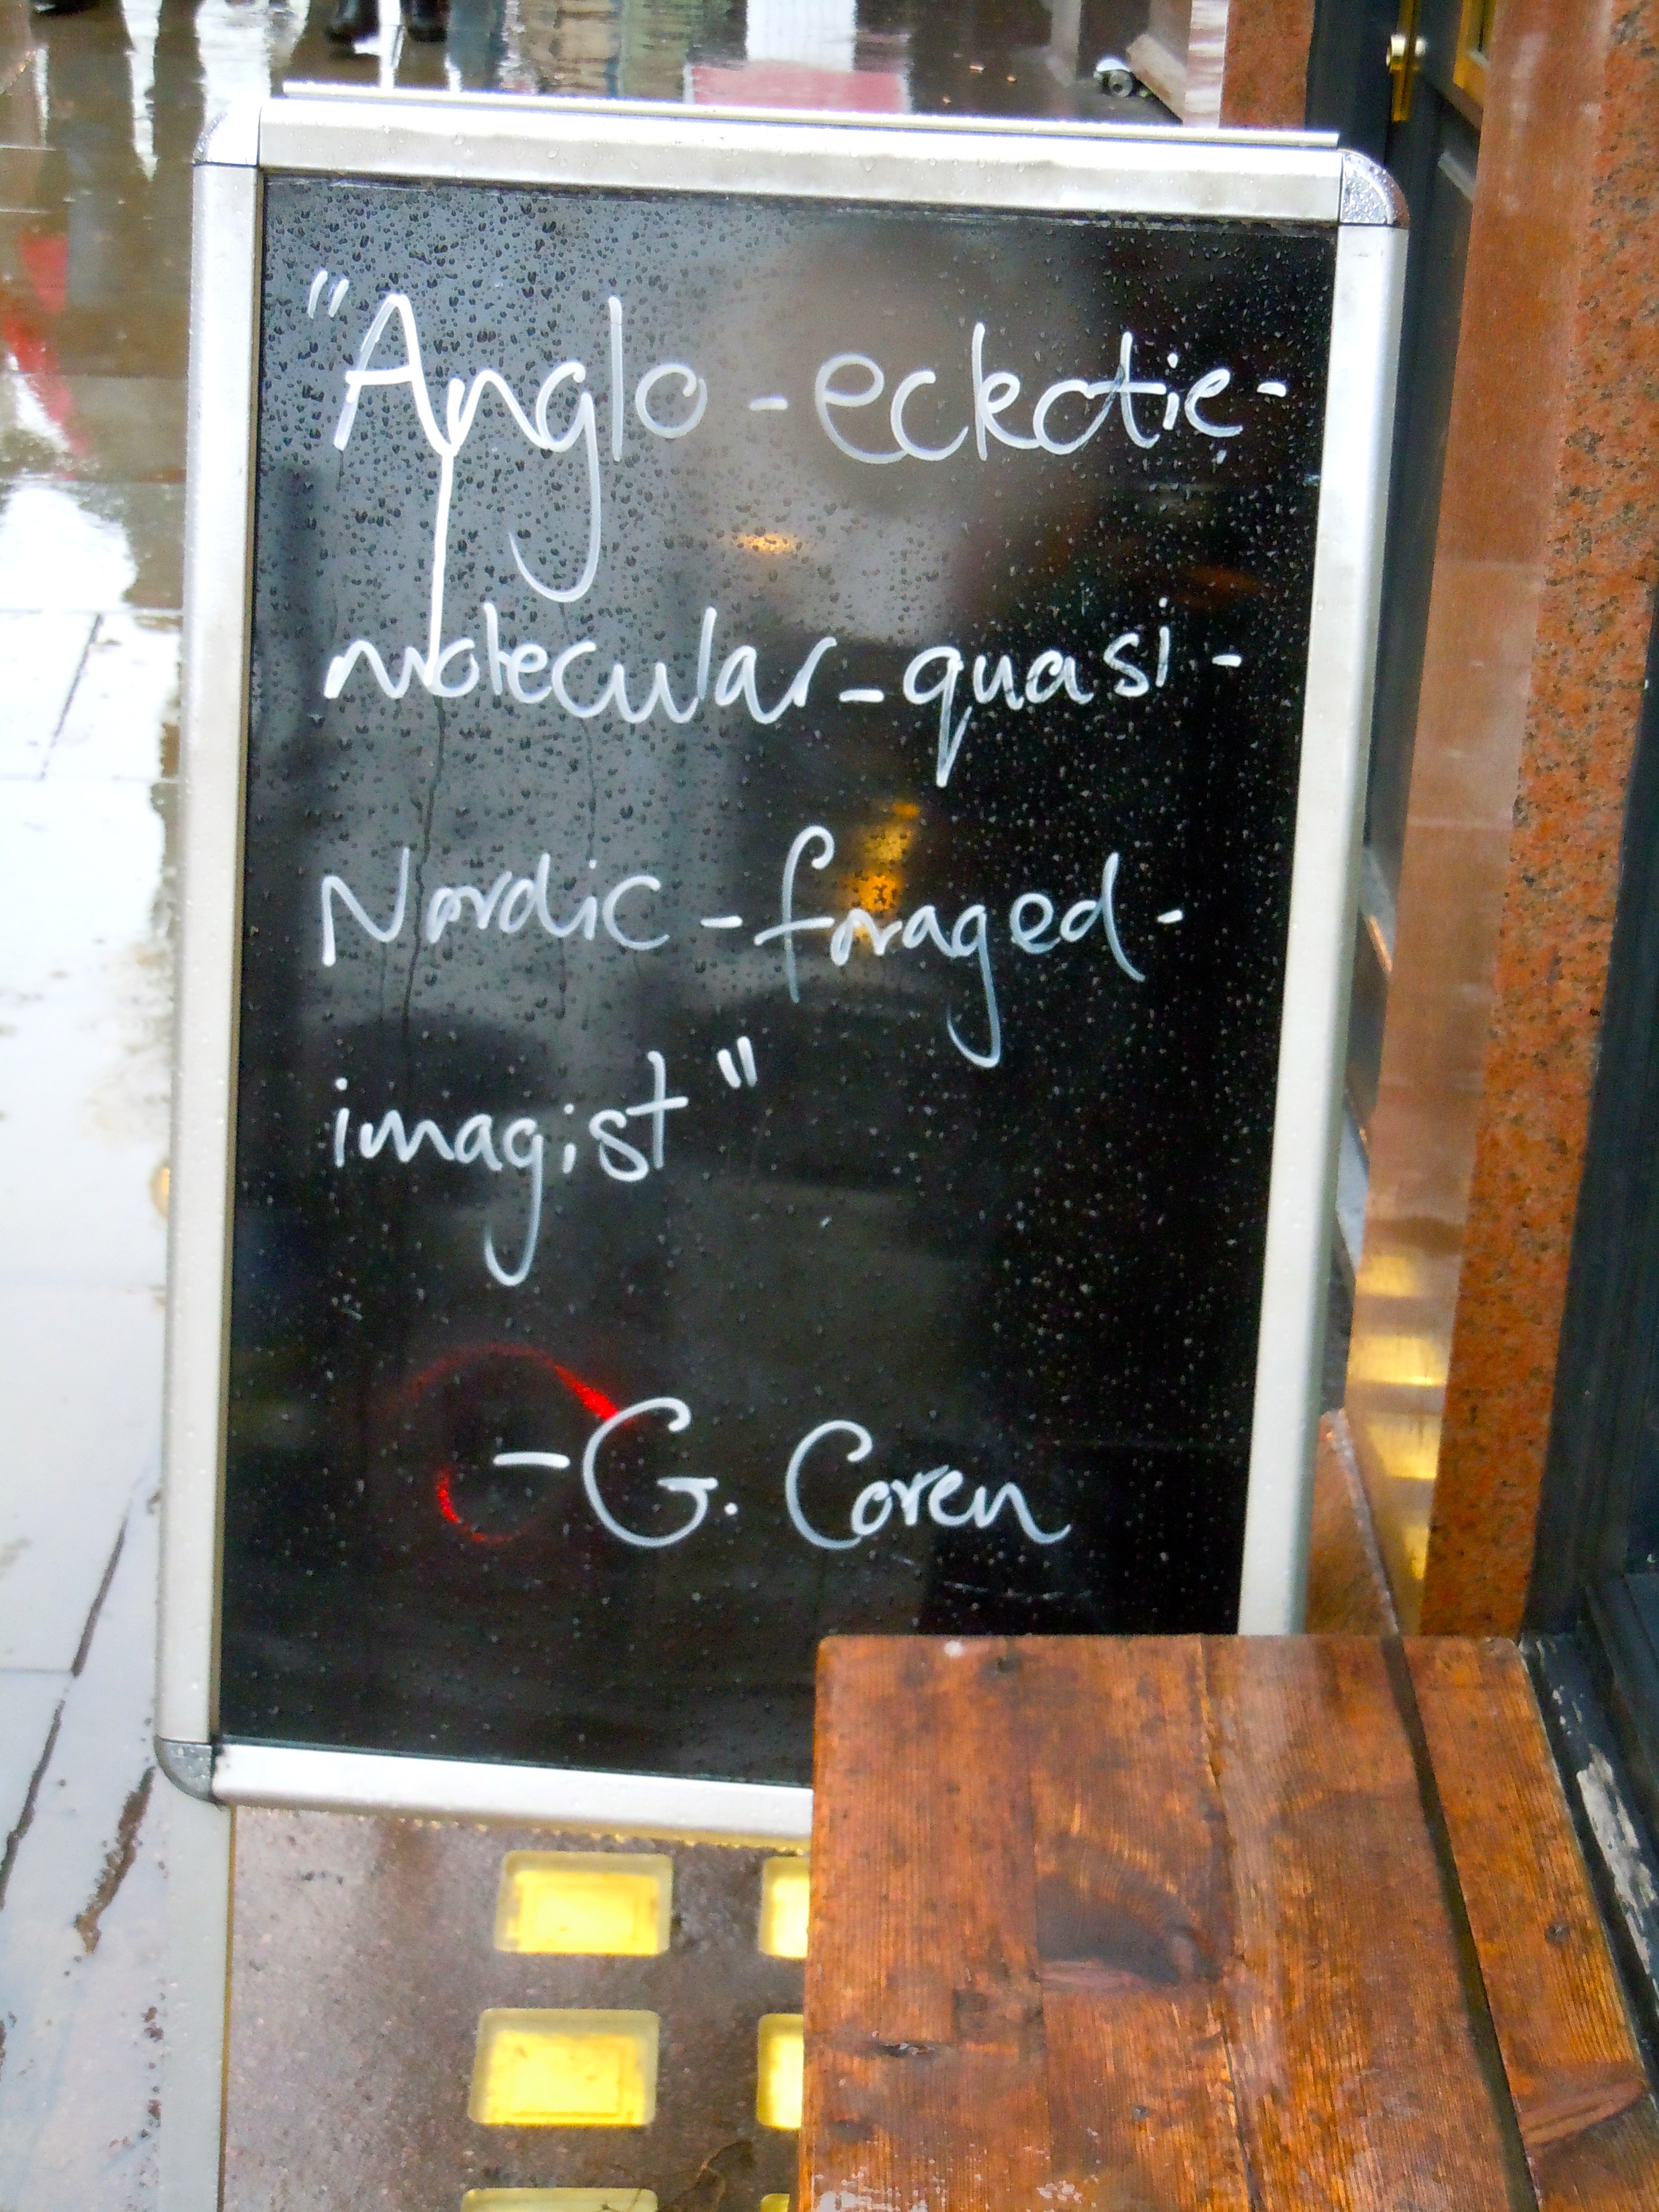 "Anglo-eckotic-
molecular-quasi-
Nordic-foraged-
imagist"
-G. Coren